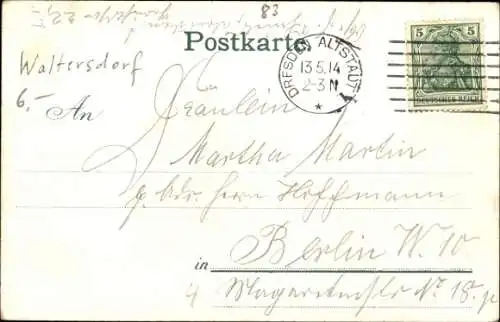 83
Postkarte.
Waltersdorf
6,-
DRESDEN ALTSTADT 1
13.5.14
2-3 N
*
5 5
DEUTSCHES REICH
An Fräulein
Martha Martin
Herrn Hoffmann
in Berlin W. 10
No 18.